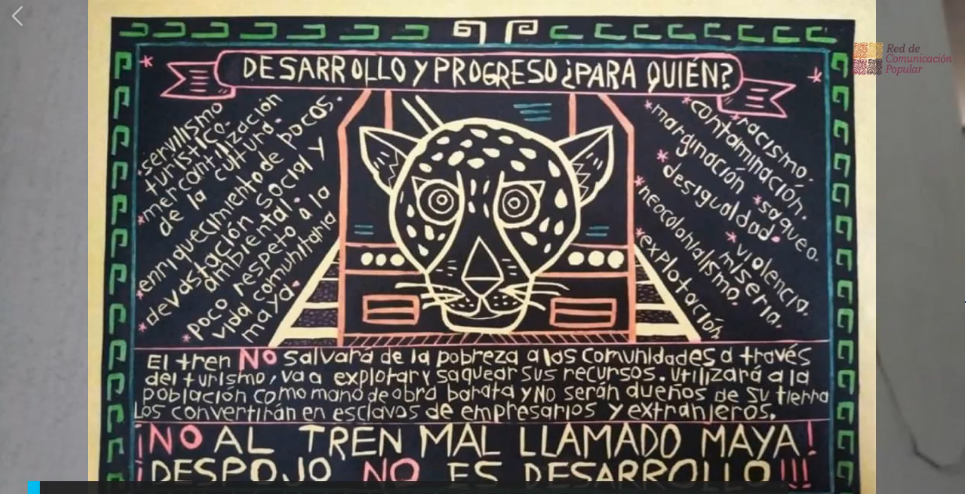 Red de
Comunicación
Popular
DESARROLLO Y PROGRESO ¿PARA QUIÉN?
*servilismo
turístico.
*mercantilización
de la cultura.
*enriquecimiento de pocos.
*devastación social y
ambiental.
*poco respeto a la
vida comunitaria
maya.
*racismo.
*contaminación.
*marginación
*saqueo.
*desigualdad.
*violencia.
*neocolonialismo.
*miseria.
*explotación
El tren NO salvará de la pobreza a las Comunidades a través
del turismo, va a explotar y saquear sus recursos. Utilizará a la
población como mano de obra barata y NO serán dueños de su tierra
Los convertirán en esclavos de empresarios y extranjeros.
¡NO AL TREN MAL LLAMADO MAYA!
¡DESPOJO NO ES DESARROLLO!!!